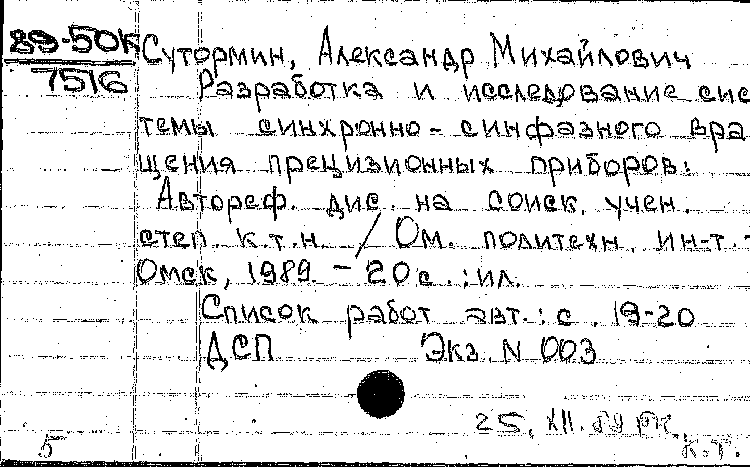 89-50К Сутормин, Александр Михайлович
7516 Разработка и исследование сис
темы синхронно-синфазного вра
щения прецизионных приборов:
Автореф. дис. на соиск. учен.
степ. к.т.н. / Ом. политехн. ин-т. -
Омск, 1989. - 20 с. : ил.
Список работ авт.: с. 19-20
ДСП Экз. N 003
25. XII. 89 РК
5 К.Т.